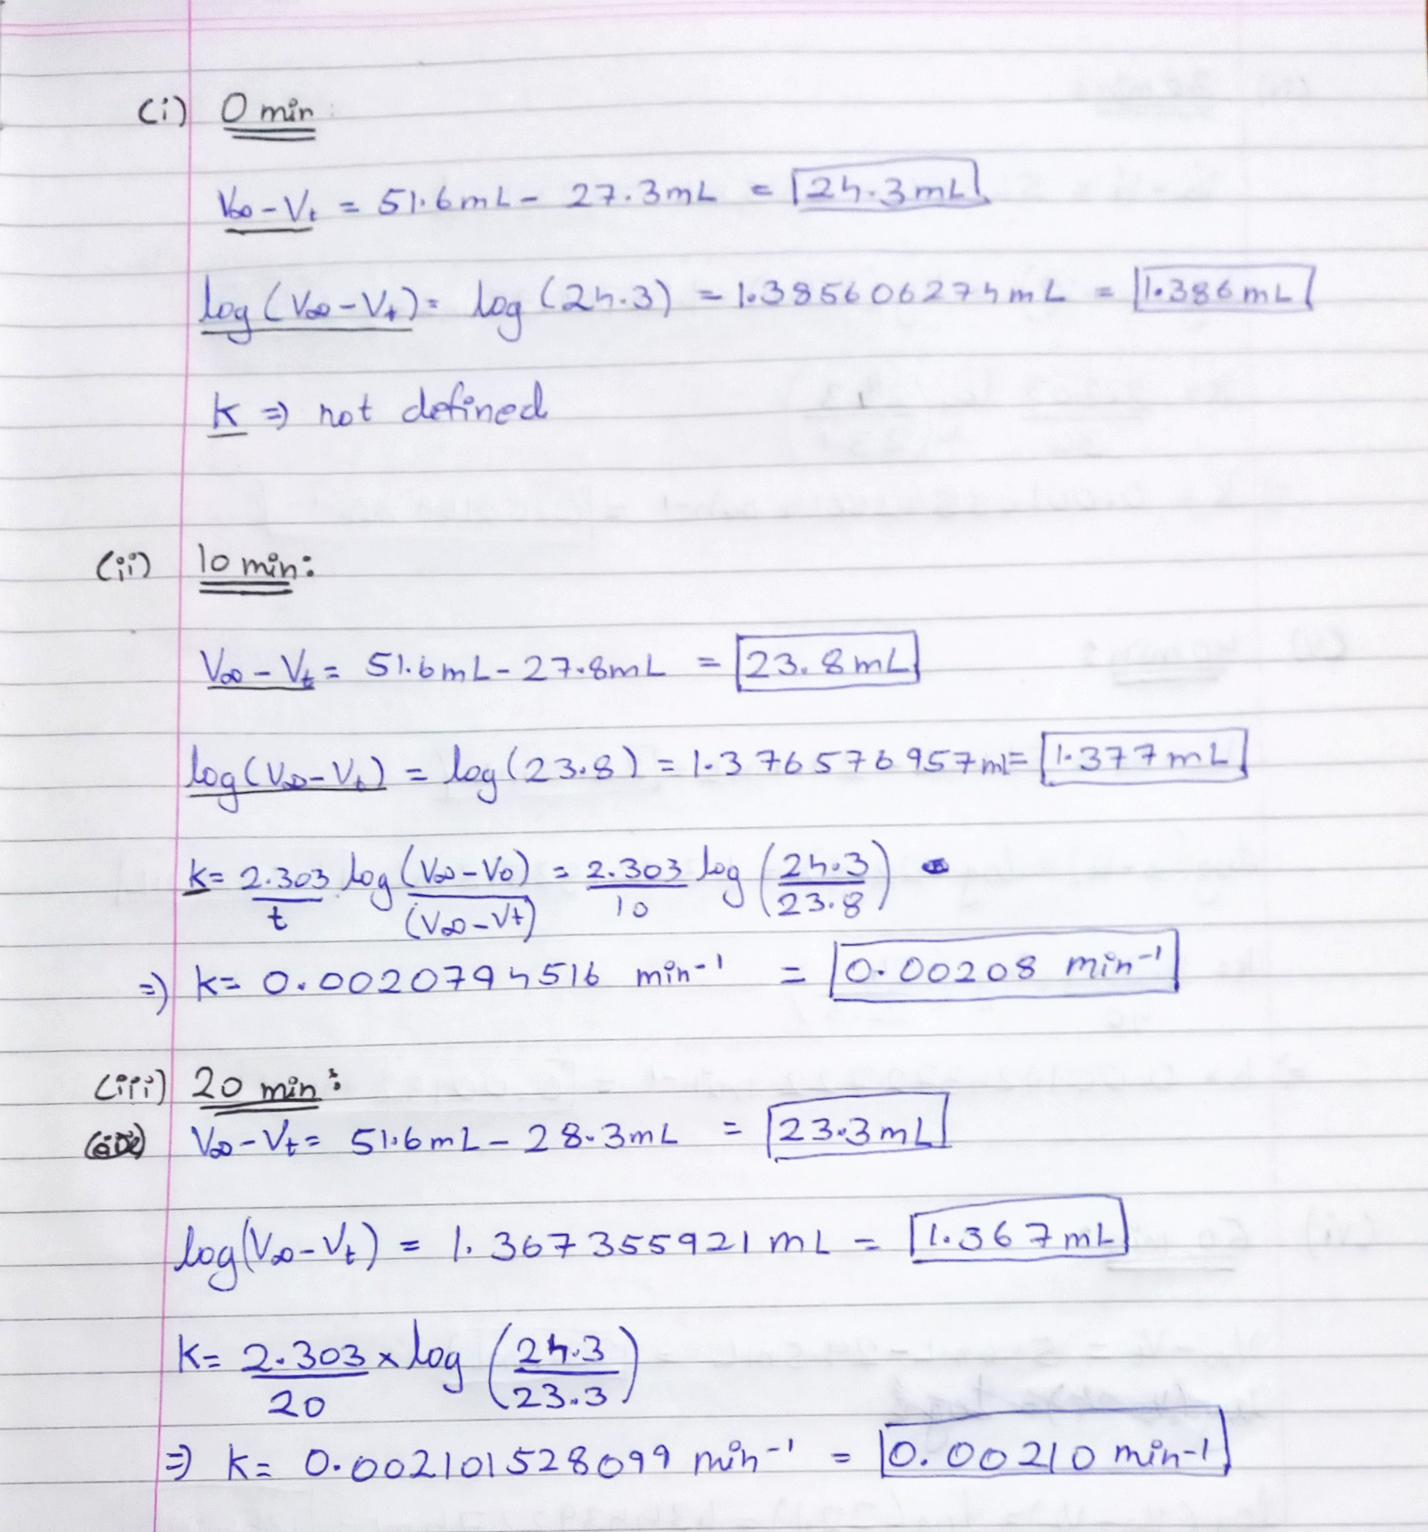 (i) 0 min:
V∞ - Vt = 51.6mL - 27.3mL = 24.3mL
log (V∞ - Vt) = log (24.3) = 1.385606274mL = 1.386mL
k ⇒ not defined
(ii) 10 min:
V∞ - Vt = 51.6mL - 27.8mL = 23.8mL
log (V∞ - Vt) = log (23.8) = 1.376576957ml = 1.377mL
k = 2.303/t log (V∞ - V0)/(V∞ - Vt) = 2.303/10 log (24.3/23.8)
⇒ k = 0.0020794516 min-1 = 0.00208 min-1
(iii) 20 min:
V∞ - Vt = 51.6mL - 28.3mL = 23.3mL
log (V∞ - Vt) = 1.367355921mL = 1.367mL
k = 2.303/20 x log (24.3/23.3)
⇒ k = 0.002101528099 min-1 = 0.00210 min-1